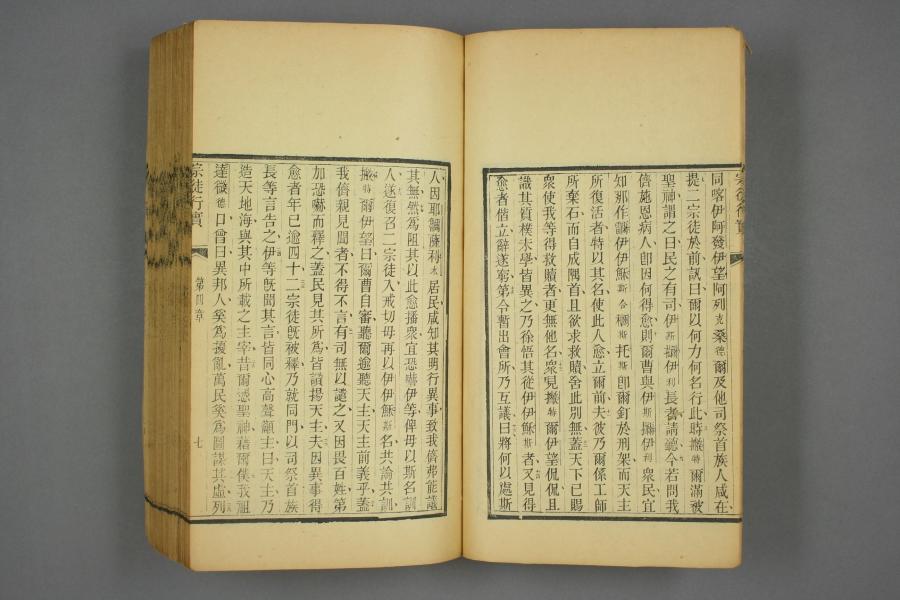 同喀伊阿發伊望阿列克桑德爾及他司祭首族人咸在
提二宗徒於前訊曰爾以何力何名行此時特爾滿被
聖神謂之曰民之有司伊斯伊利長者請聽今若問我
儕施恩病人卽因何得愈則爾曹與伊斯伊利衆民宜
知那作伊伊穌斯合斯托斯卽爾釘於刑架而天主
所復活者特以其名使此人愈立爾前夫彼乃爾係工師
所棄石而自成隅首且欲求救贖舍此別無蓋天下已賜
衆使我等得救贖者更無他名衆見特爾伊望侃侃且
識其質樸未學皆異之乃徐悟其從伊伊穌斯者又見得
愈者偕立辭遂窮第令暫出會所乃互議曰將何以處斯
人因耶薩利木居民咸知其明行異事致我儕弗能諱
其無然爲阻其以此愈播衆宜恐嚇伊等俾毋以斯名訓
人遂復召二宗徒入戒切毋再以伊伊穌斯名共論共訓
特爾伊望曰爾曹自審聽爾逾聽天主天主前義乎蓋
我儕親見聞者不得不言有司無以譴之又因畏百姓第
加恐嚇而釋之蓋民見其所爲皆讚揚天主夫因異事得
愈者年已逾四十二宗徒旣被釋乃就同門以司祭首族
長等言告之伊等旣聞其言皆同心高聲籲主曰天主乃
造天地海與其中所載之主宰昔爾感聖神藉爾僕我祖
達微德口曾曰異邦人奚爲擾亂萬民奚爲圖謀其虛列
宗徒行實
第四章
七